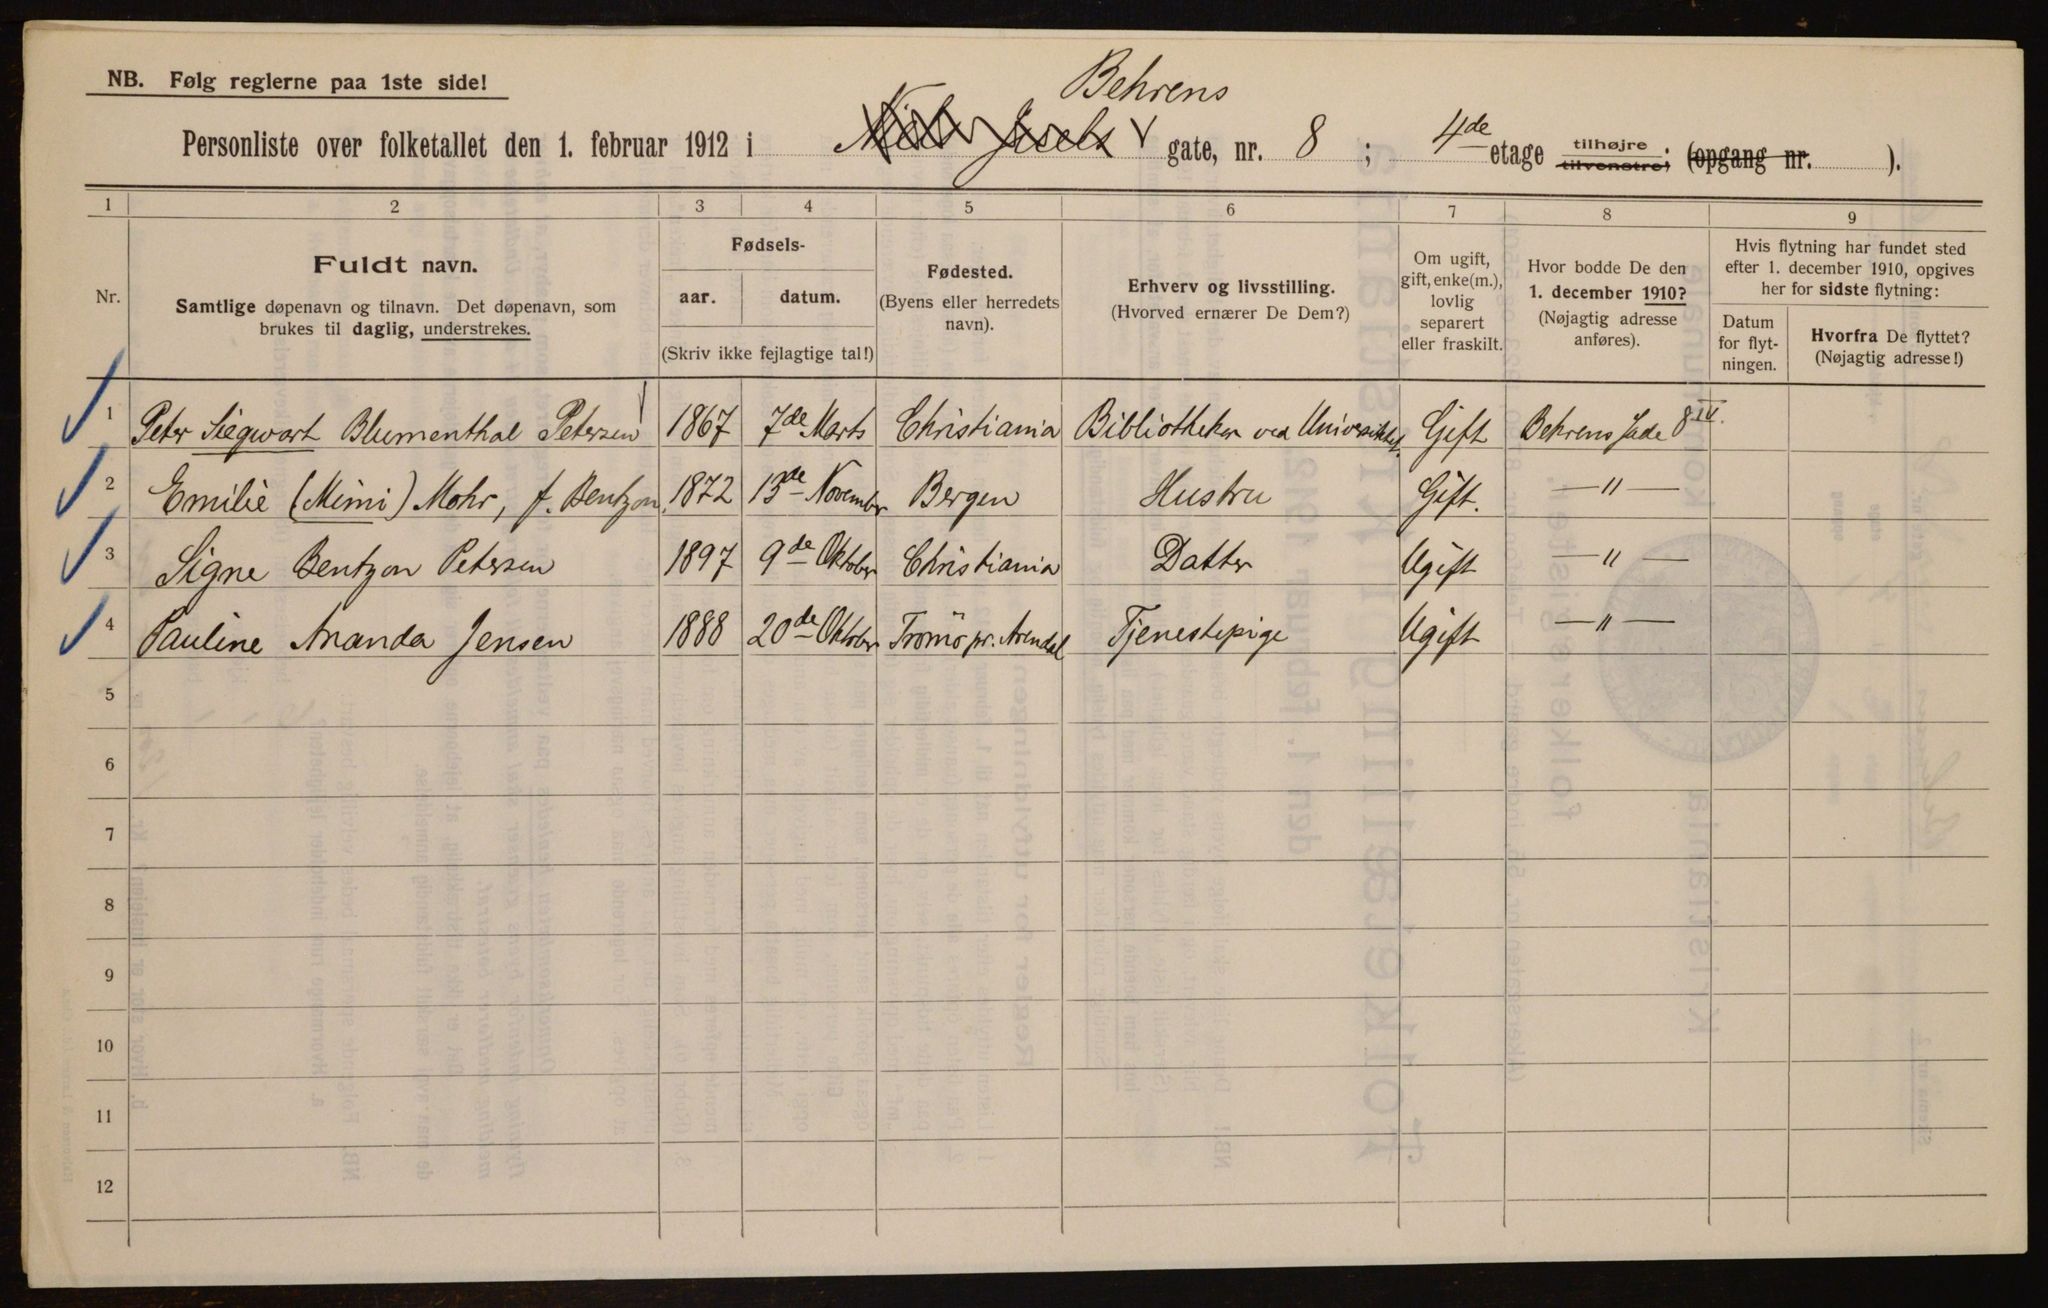 NB. Følg reglerne paa 1ste side!
Behrens
Personliste over folketallet den 1. februar 1912 i gate, nr. 8 ; 4de etage tilhøjre tilvenstre; (opgang nr. ).
1 2 3 4 5 6 7 8 9
Nr.
Fuldt navn.
Samtlige døpenavn og tilnavn. Det døpenavn, som
brukes til daglig, understrekes.
Fødsels-
aar. datum.
(Skriv ikke fejlagtige tal!)
Fødested.
(Byens eller herredets
navn).
Erhverv og livsstilling.
(Hvorved ernærer De Dem?)
Om ugift,
gift, enke(m.),
lovlig
separert
eller fraskilt.
Hvor bodde De den
1. december 1910?
(Nøjagtig adresse
anføres).
Hvis flytning har fundet sted
efter 1. december 1910, opgives
her for sidste flytning:
Datum
for flyt-
ningen.
Hvorfra De flyttet?
(Nøjagtig adresse!)
1 Peter Siegwart Blumenthal Petersen 1867 7de Marts Christiania Bibliothekar ved Universitetet. Gift Behrens Gade 8 IV.
2 Emilie (Mimi) Mohr, f. Bentzon. 1872 13de November Bergen Hustru Gift. —"—
3 Signe Bentzon Petersen 1897 9de Oktober Christiania Datter Ugift —"—
4 Pauline Ananda Jensen 1888 20de Oktober Tromö pr. Arendal Tjenestepige Ugift —"—
5
6
7
8
9
10
11
12